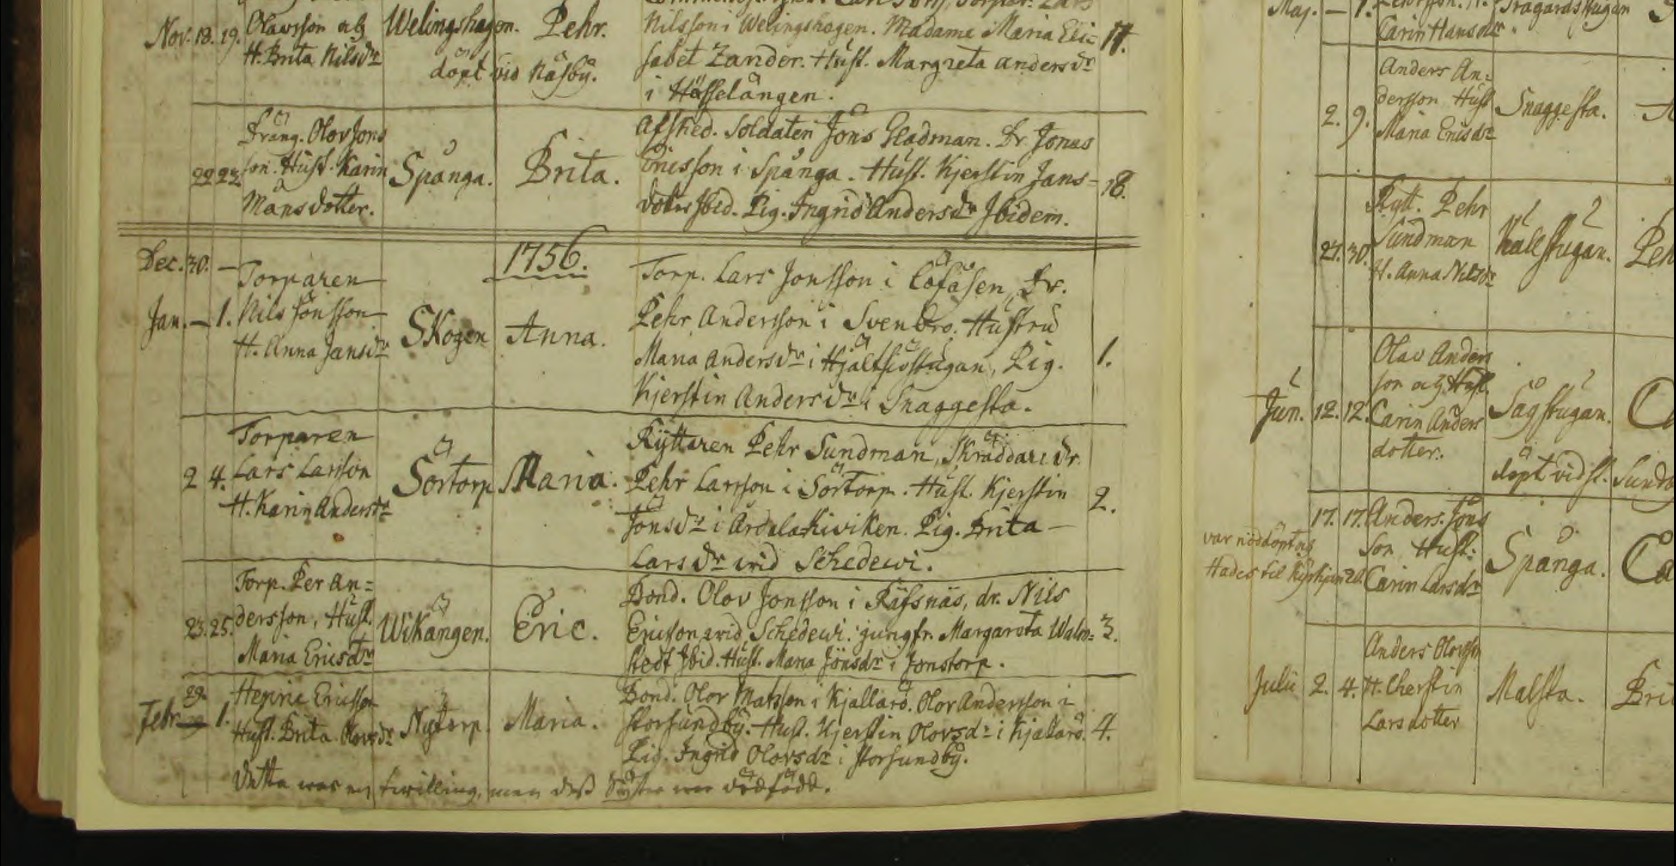 Nov. 18. 19. Olavsson och Welingshagen. Pehr. Nilsson i Welingshagen. Madame Maria Eli= 17.
H. Brita Nilsdr döpt vid Näsby. sabet Zander. Hust. Margreta Andersdr
i Hässelängen.
Dräng. Olov Jons Afsked. Soldaten Jöns Gladman. Dr Jonas
22 23 son. Hust. Karin Spånga. Brita. Ericsson i Spånga. Hust. Kjerstin Jans= 18.
Månsdotter. dotter Ibid. Pig. Ingrid Andersdr Ibidem.
1756.
Dec. 30. Torparen Torp. Lars Jonsson i Löfåsen, Dr.
Jan. — 1. Nils Jönsson Skogen Anna. Pehr Andersson i Svenbro. Hustru
H. Anna Jansdr Maria Andersdr i Pig. 1.
Kjerstin Andersdr i Snaggesta.
Torparen Ryttaren Pehr Sundman, Skräddare Dr.
2 4. Lars Larsson Sörtorp Maria. Pehr Larsson i Sörtorp. Hust. Kjerstin 2.
H. Karin Andersdr Jönsdr i Pig. Brita —
Larsdr wid Schedewi.
Torp. Per An= Bond. Olov Jonsson i Räfsnäs, dr. Nils
23. 25. dersson, Hust. Wikängen. Eric. Ericson wid Schedewi. jungfr. Margareta Walm= 3.
Maria Ericsdr stedt Ibid. Hust. Maria Jönsdr i Jonstorp.
29. Henric Ericsson Bond. Olov Matsson i Kjallarö. Olov Andersson i
Febr. 1. Hust. Brita Olovsdr Nytorp. Maria. Storsundby. Hust. Kjerstin Olovsdr i Kjallarö. 4.
Pig. Ingrid Olovsdr i Storsundby.
Detta war en twilling, men dess Syster war dödfödd.
Maj. — 1.
Carin Hansdr.
Anders An=
2. 9. dersson Hust Snaggesta.
Maria Ericsdr
Rytt. Pehr
27. 30. Sundman Källstugan. Peh
H. Anna Nilsdr
Olav Anders
son och Hust.
Jun. 12. 12. Carin Anders Sågstugan.
dotter. döpt vid st. Sundb
17. 17. Anders Jons
var nöddöpt och son Hust: Spånga. Ca
Hades til Kyrkjan 20. Carin Larsdr
Anders Olovsson
Julii 2. 4. H. Cherstin Malsta. Bri
Larsdotter